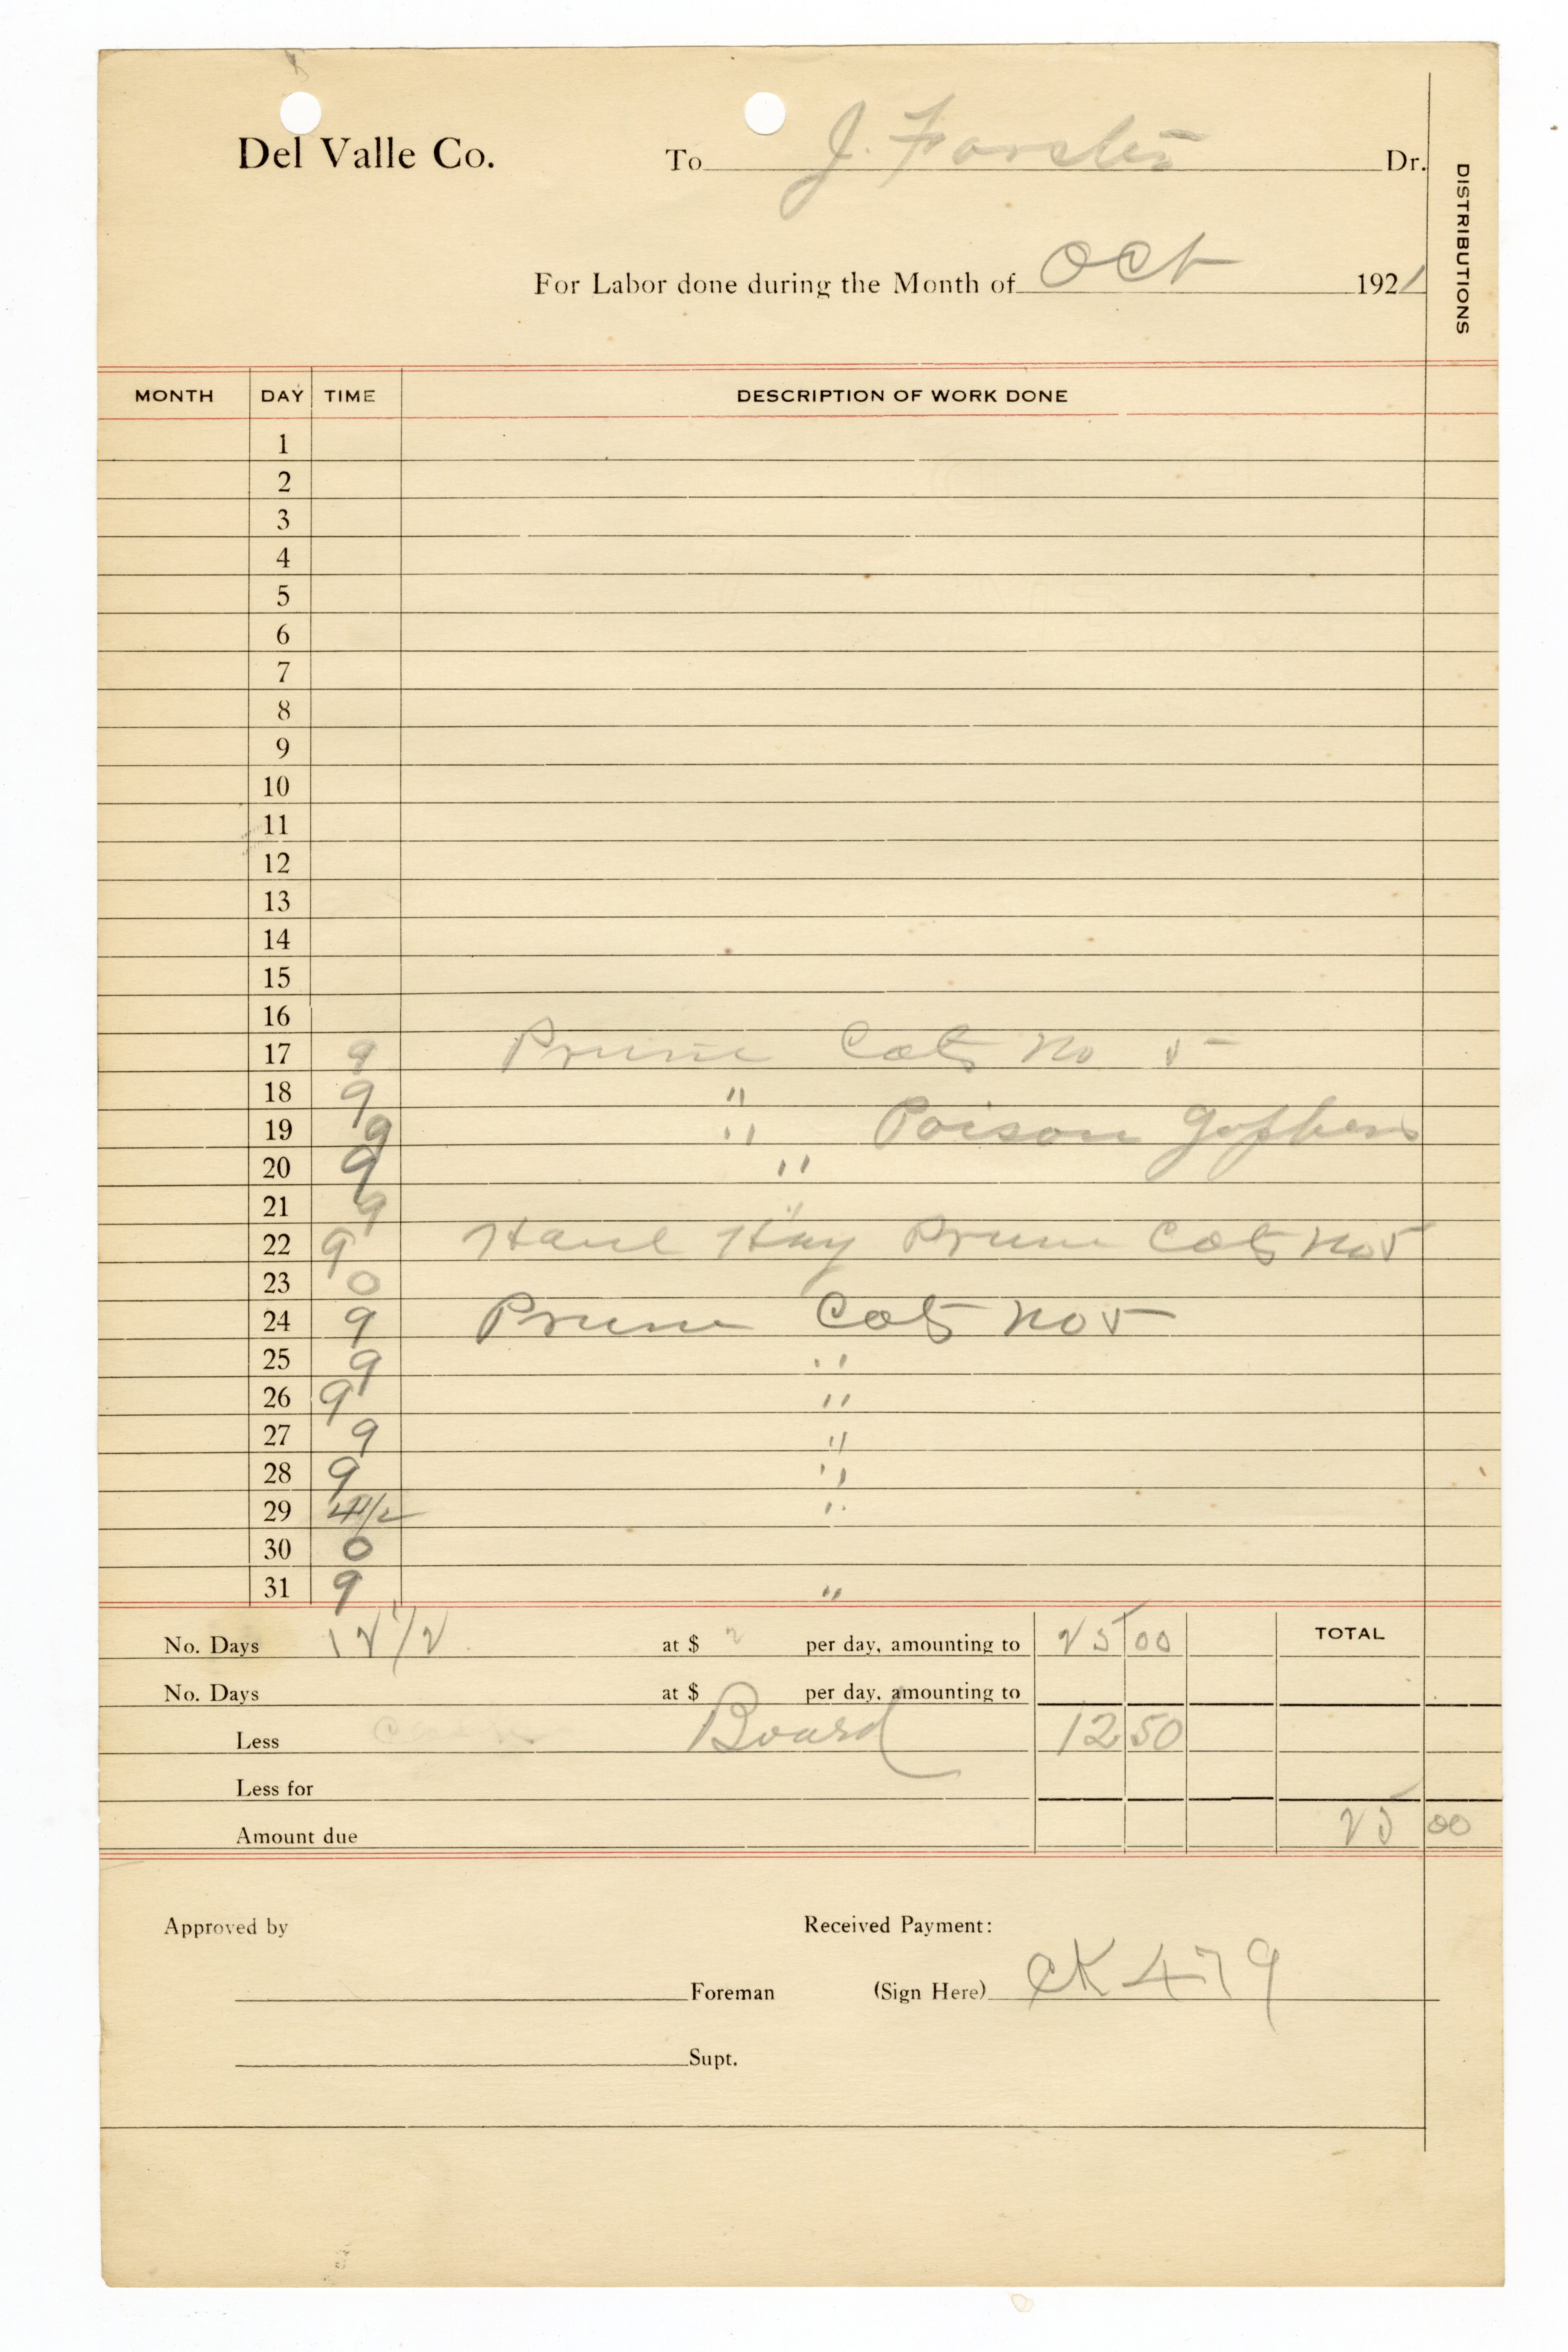 Del Valle Co. To J. Forster Dr.
DISTRIBUTIONS
For Labor done during the Month of Oct 1921
MONTH DAY TIME DESCRIPTION OF WORK DONE
1
2
3
4
5
6
7
8
9
10
11
12
13
14
15
16
17 9 Prune Cots No 5
18 9 "
19 9 " Poison Gophers
20 9 "
21 9 "
22 9 Haul Hay Prune Cots No 5
23 0
24 9 Prune Cots No 5
25 9 "
26 9 "
27 9 "
28 9 "
29 4 1/2 "
30 0
31 9 "
No. Days 12 1/2 at $ 2 per day, amounting to 25 00 TOTAL
No. Days at $ per day, amounting to
Less Board 12 50
Less for
Amount due 25 00
Approved by Received Payment:
Foreman (Sign Here) CK 479
Supt.